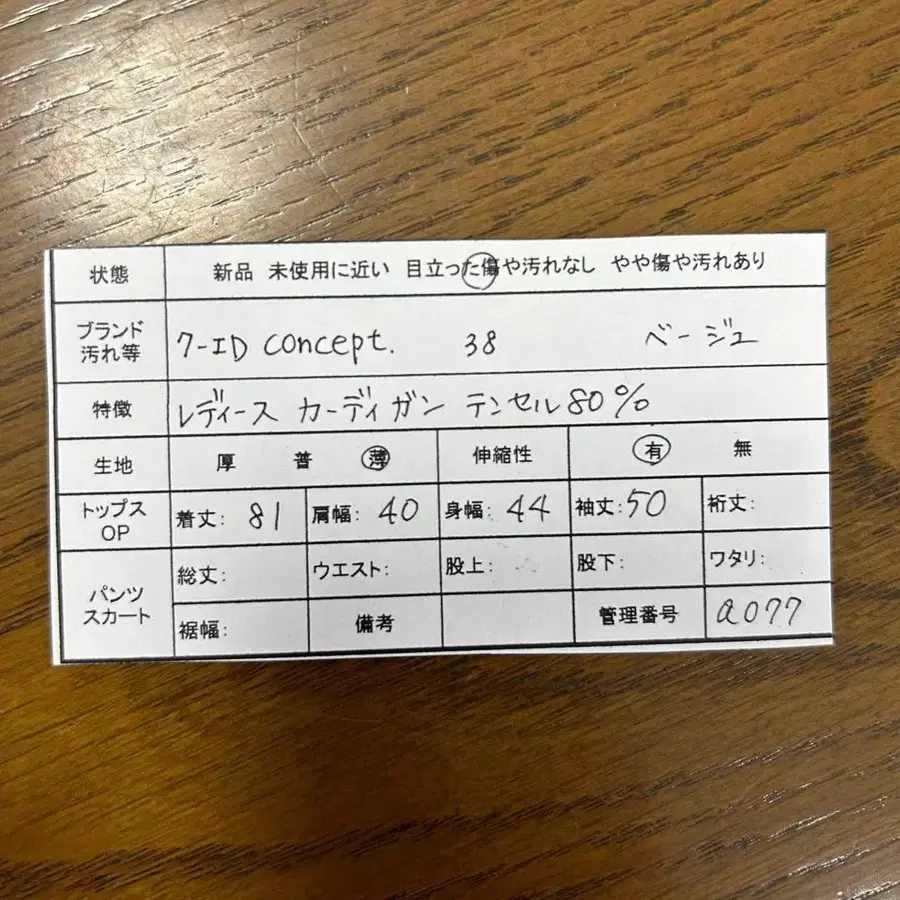 状態 新品 未使用に近い 目立った傷や汚れなし やや傷や汚れあり
ブランド
汚れ等 7-ID concept. 38 ベージュ
特徴 レディース カーディガン テンセル80%
生地 厚 普 薄 伸縮性 有 無
トップス
OP 着丈: 81 肩幅: 40 身幅: 44 袖丈: 50 裄丈:
パンツ
スカート 総丈: ウエスト: 股上: 股下: ワタリ:
裾幅: 備考 管理番号 a077